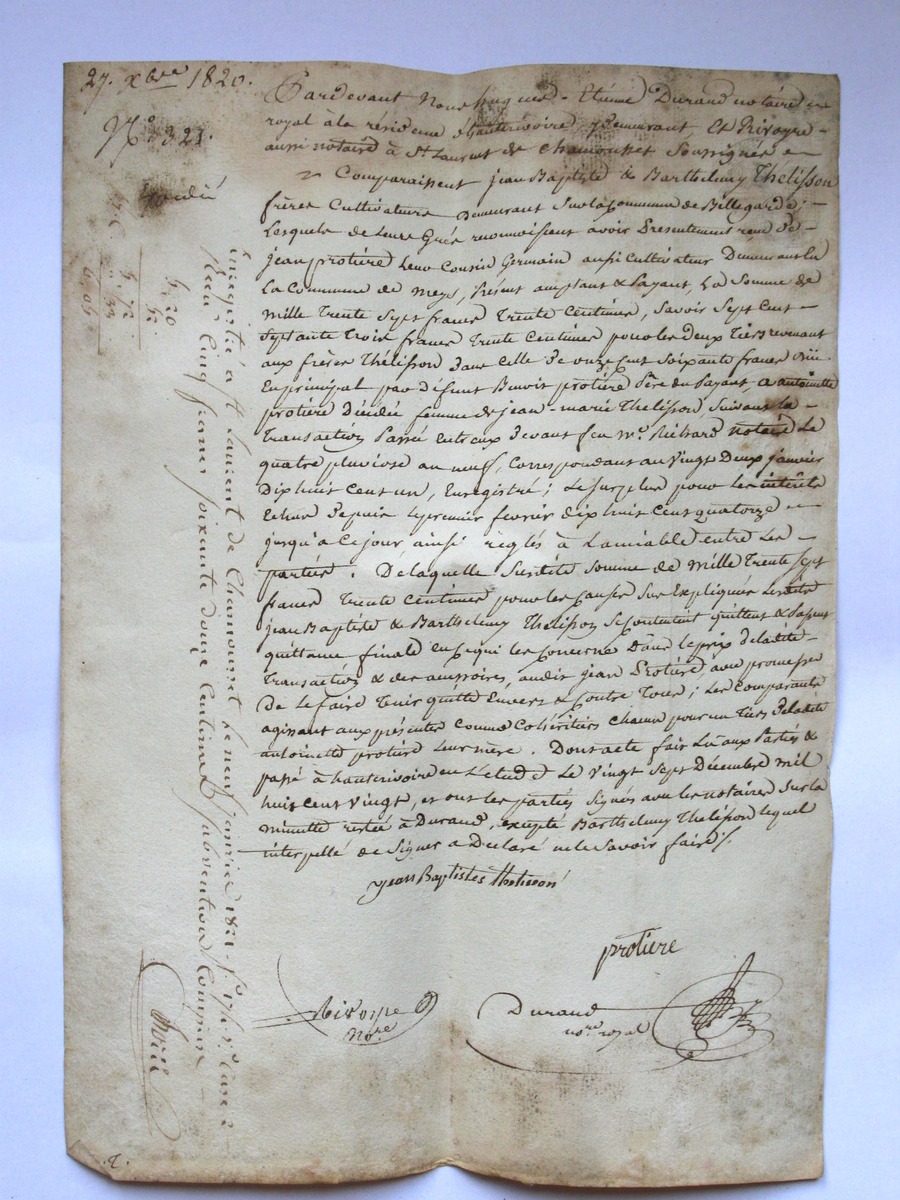 27. xbre 1820.
N.° 321.
Pardevant Nous hugues - Etienne Durand notaire
royal a la résidence d'hauterivoire, y demeurant, Et Rivoyre
aussi notaire à St Laurent de Chamousset Soussignés
Comparaissent jean Baptiste & Barthelemy Thélisson
frères Cultivateurs Demeurant Sur la Commune de Bellegarde;
Lesquels de Leurs Grés reconnoissent avoir Présentement reçu de
jean protière Leur Cousin Germain aussi Cultivateur Demeurant En
La Commune de Meys, Présent acceptant & Payant, La Somme de
Mille Trente Sept francs Trente Centimes, Savoir Sept Cent
Septante Trois francs Trente Centimes pour les Deux Tiers revenant
aux frères Thélisson Dans Celle de onze Cent Soixante francs
En principal par défunt Benoit protière Père du Payant, a antoinette
protière Décédée femme de jean-marie Thelisson Suivant la
Transaction Passée Entr'eux Devant feu Me. Richard notaire Le
quatre pluviose an neuf, Correspondant au Vingt Deux janvier
Dix huit Cent un, Enregistré; Le Surplus pour les intérêts
Echus Depuis Le premier fevrier dix huit Cent quatorze
jusqu'à Ce jour, ainsi réglés à L'amiable entre Les
parties. De laquelle Susdite Somme de Mille Trente Sept
francs Trente Centimes pour les Causes Sus Expliquées Lesdits
jean Baptiste & Barthelemy Thelisson Se Contentent quittent & Passent
quittance finale En Ce qui les Concerne Dans le prix de ladite
Transaction & des accessoires, audit jean Protière, avec promesse
De Le faire Tenir quitte Envers & Contre Tous; Les Comparants
agissant aux présentes Comme Cohéritiers Chacun pour un Tiers de ladite
antoinette protière Leur mère. Dont acte fait Lu aux Parties &
passé à hauterivoire En L'Etude Le Vingt Sept Décembre mil
huit Cent Vingt, et ont les parties Signés avec les notaires Sur la
minutte restée à Durand, excepté Barthelemy Thelisson lequel
interpellé de Signer a Déclaré ne le Savoir faire
jean Baptistes thelisson
protiere
Rivoyre
Nore.
Durand
nore. royal
Enregistré à St Laurent de Chamousset Le neuf janvier 1821
Reçu Cinq francs Soixante douze Centimes Subvention Comprise
5, 20
52
5, 72